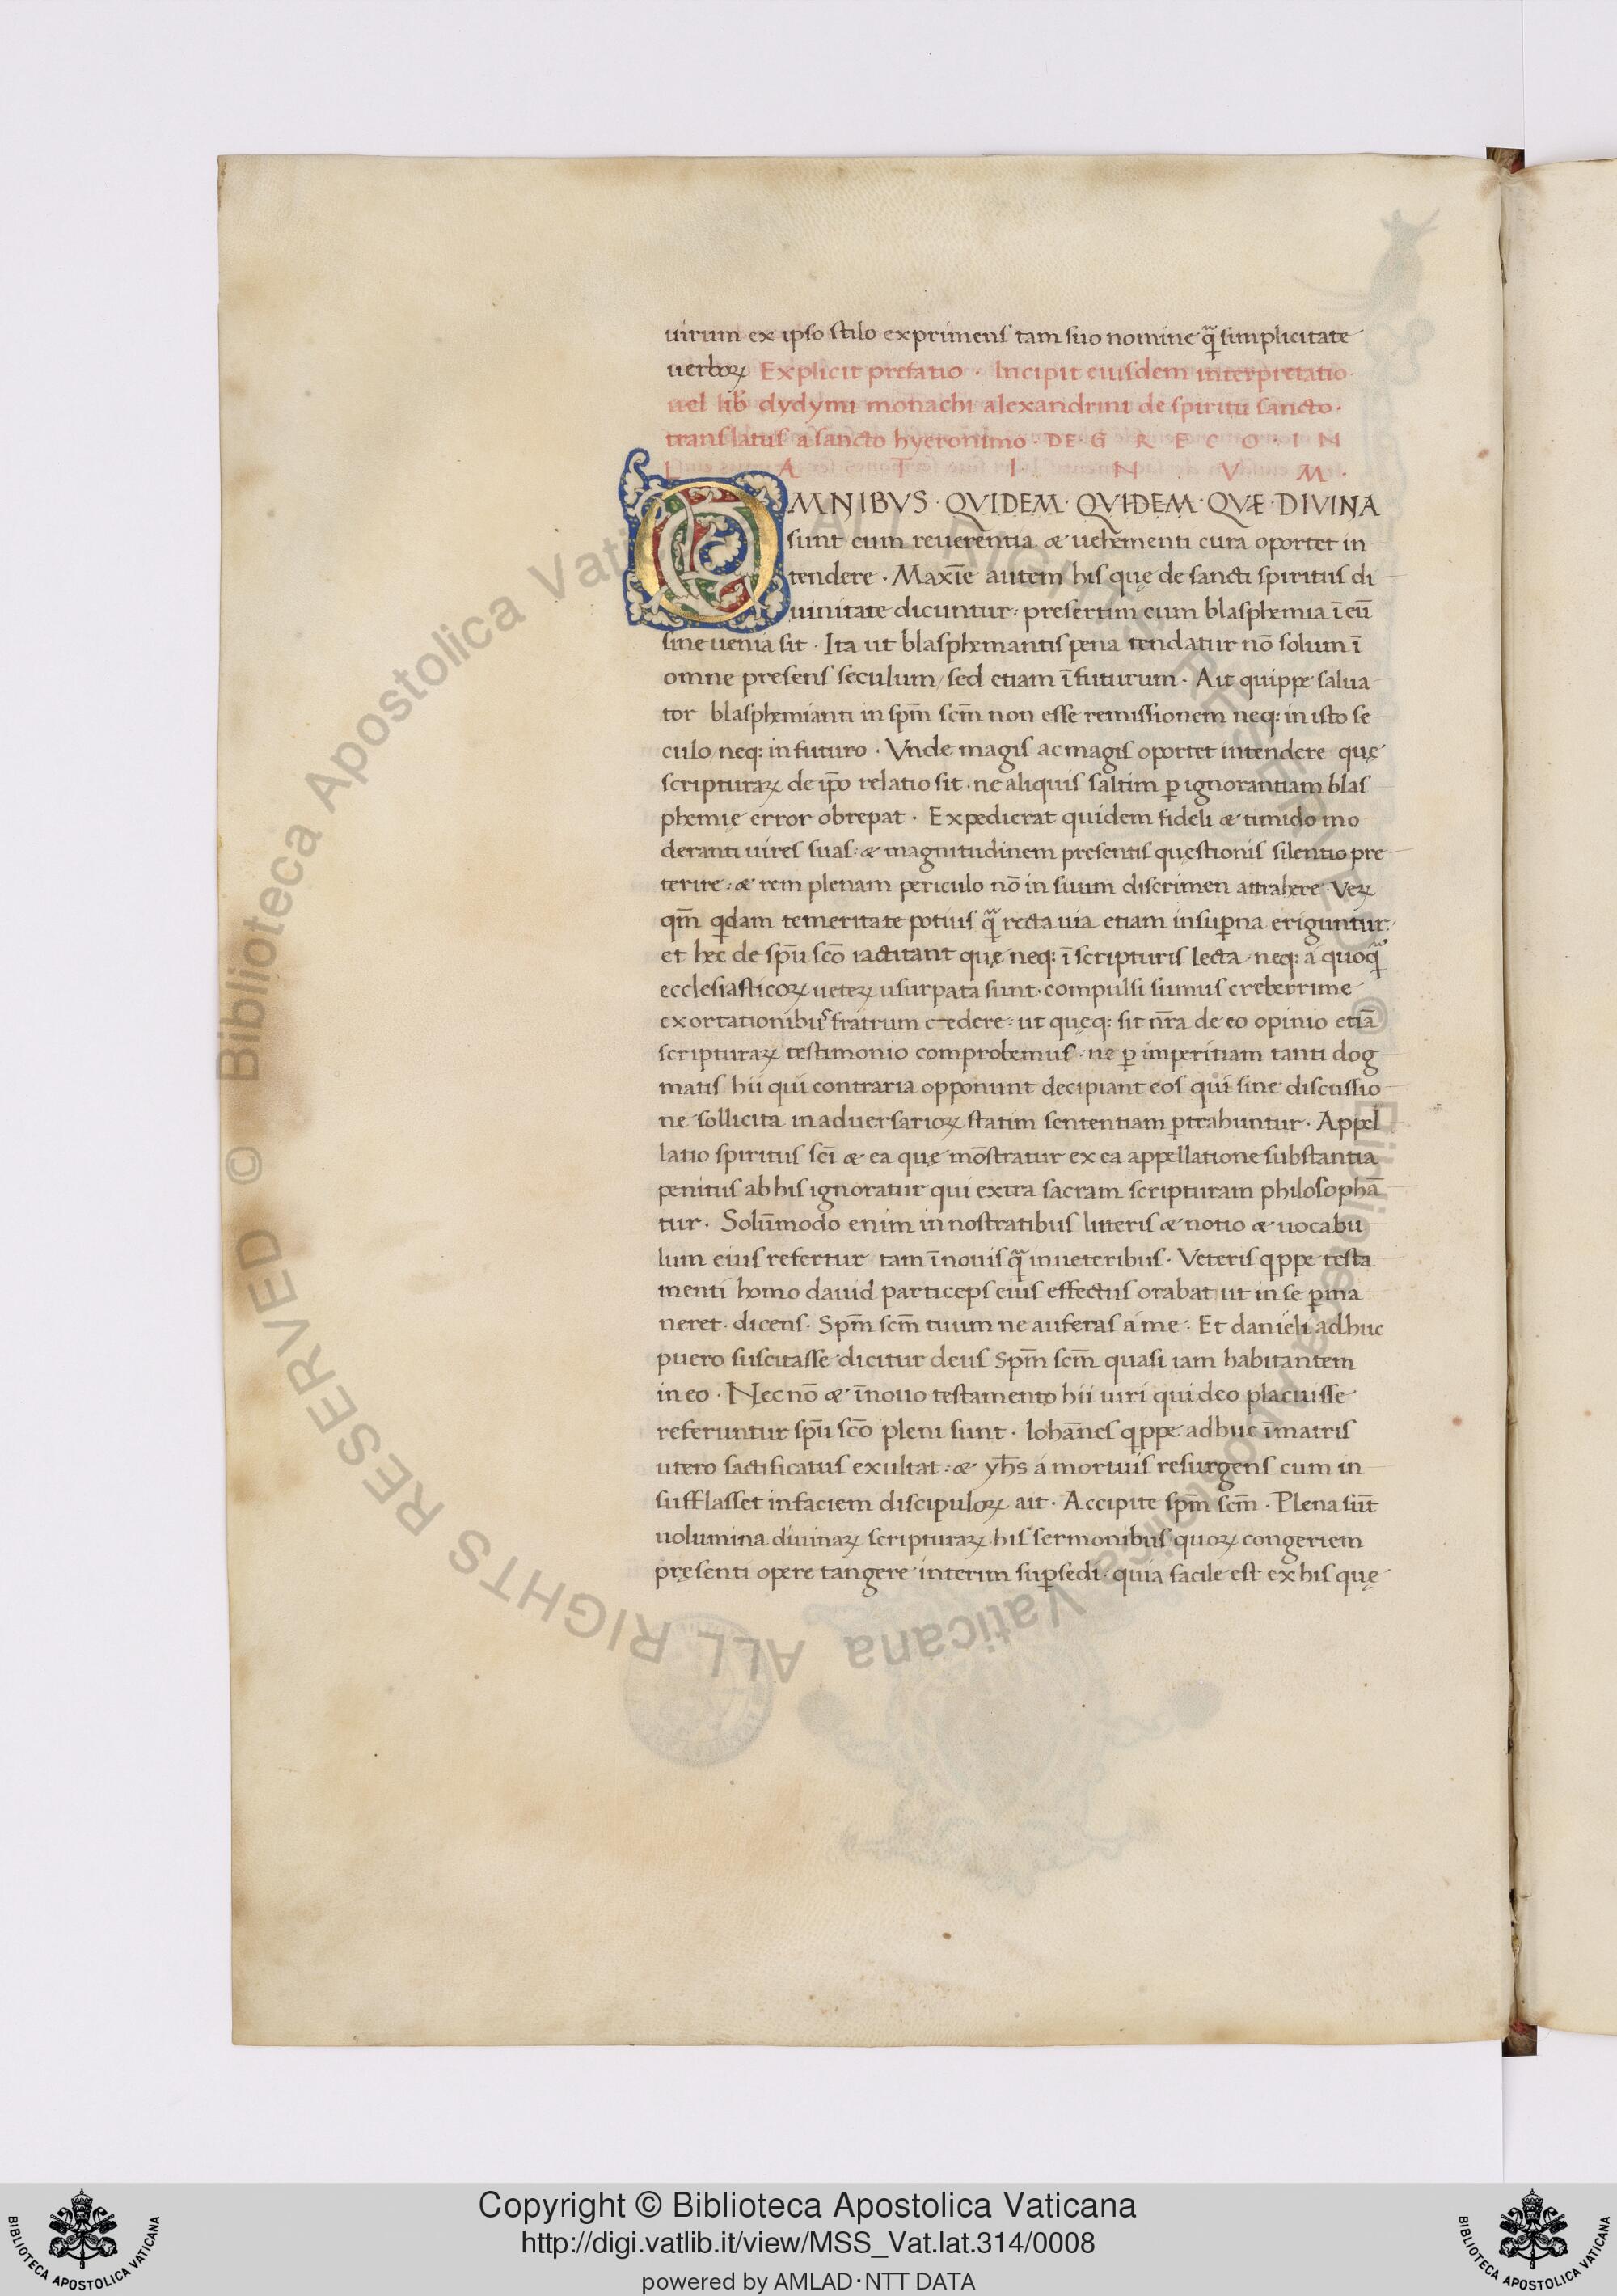 uirum ex ipso stilo exprimens tam suo nomine q̃ simplicitate
uerboꝝ Explicit prefatio · Incipit eiusdem interpretatio·
uel lib̃ dydymi monachi alexandrini de spiritu sancto·
translatus a sancto hyeronimo · DE· G R E C O · I N
L A T I N V M ·
OMNIBVS · QVIDEM · QVIDEM · QVÆ · DIVINA
sunt cum reuerentia æ uehementi cura oportet in
tendere · Maxīe autem his quę de sancti spiritus di
uinitate dicuntur: presertim cum blasphemia ī eū
sine uenia sit · Ita ut blasphemantis pena tendatur nō solum ī
omne presens seculum/ sed etiam ī futurum · Ait quippe salua
tor blasphemianti in spm̄ scm̄ non esse remissionem neq: in isto se
culo neq: in futuro · Vnde magis ac magis oportet intendere quę
scripturaꝝ de ip̄o relatio sit · ne aliquis saltim ꝑ ignorantiam blas
phemię error obrepat · Expedierat quidem fideli æ timido mo
deranti uires suas: æ magnitudinem presentis quęstionis silentio pre
terire: æ rem plenam periculo nō in suum discrimen attrahere · Veꝝ
qm̄ qdam temeritate potius q̃ recta uia etiam in suꝑna eriguntur·
et hec de spū scō iactitant quę neq: ī scripturis lecta · neq: á quoq̃
ecclesiasticoꝝ ueteꝝ usurpata sunt · compulsi sumus creberrime
exortationibus fratrum cedere: ut quęq: sit nr̄a de eo opinio etiā
scripturaꝝ testimonio comprobemus · ne ꝑ imperitiam tanti dog
matis hii qui contraria opponunt decipiant eos qui sine discussio
ne sollicita in aduersarioꝝ statim sententiam ꝑtrahuntur · Appel
latio spiritus scī æ ea quę mōstratur ex ea appellatione substantia
penitus ab his ignoratur qui extra sacram scripturam philosophā
tur · Solūmodo enim in nostratibus litteris æ notio æ uocabu
lum eius refertur tam ī nouis q̃ in ueteribus · Veteris qppe testa
menti homo dauid particeps eius effectus orabat ut in se ꝑma
neret · dicens · Spm̄ scm̄ tuum ne auferas á me · Et danieli adhuc
puero suscitasse dicitur deus spm̄ scm̄ quasi iam habitantem
in eo · Nec nō æ ī nouo testamento hii uiri qui deo placuisse
referuntur spū scō pleni sunt · Iohānes qppe adhuc ī matris
utero sactificatus exultat: æ yh̄s á mortuis resurgens cum in
sufflasset in faciem discipuloꝝ ait · Accipite spm̄ scm̄ · Plena sūt
uolumina diuinaꝝ scripturaꝝ his sermonibus quoꝝ congeriem
pręsenti opere tangere interim suꝑsedi · quia facile est ex his quę
© Biblioteca Apostolica Vaticana ALL RIGHTS RESERVED
© Biblioteca Apostolica Vaticana ALL RIGHTS RESERVED
Copyright © Biblioteca Apostolica Vaticana
http://digi.vatlib.it/view/MSS_Vat.lat.314/0008
powered by AMLAD·NTT DATA
BIBLIOTECA APOSTOLICA VATICANA
BIBLIOTECA APOSTOLICA VATICANA